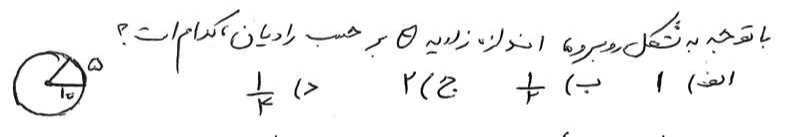 با توجه به شکل روبرو، اندازه زاویه θ بر حسب رادیان، کدام است؟
الف) ۱ ب) ۱/۲ ج) ۲ د) ۱/۴
۵
۱۰